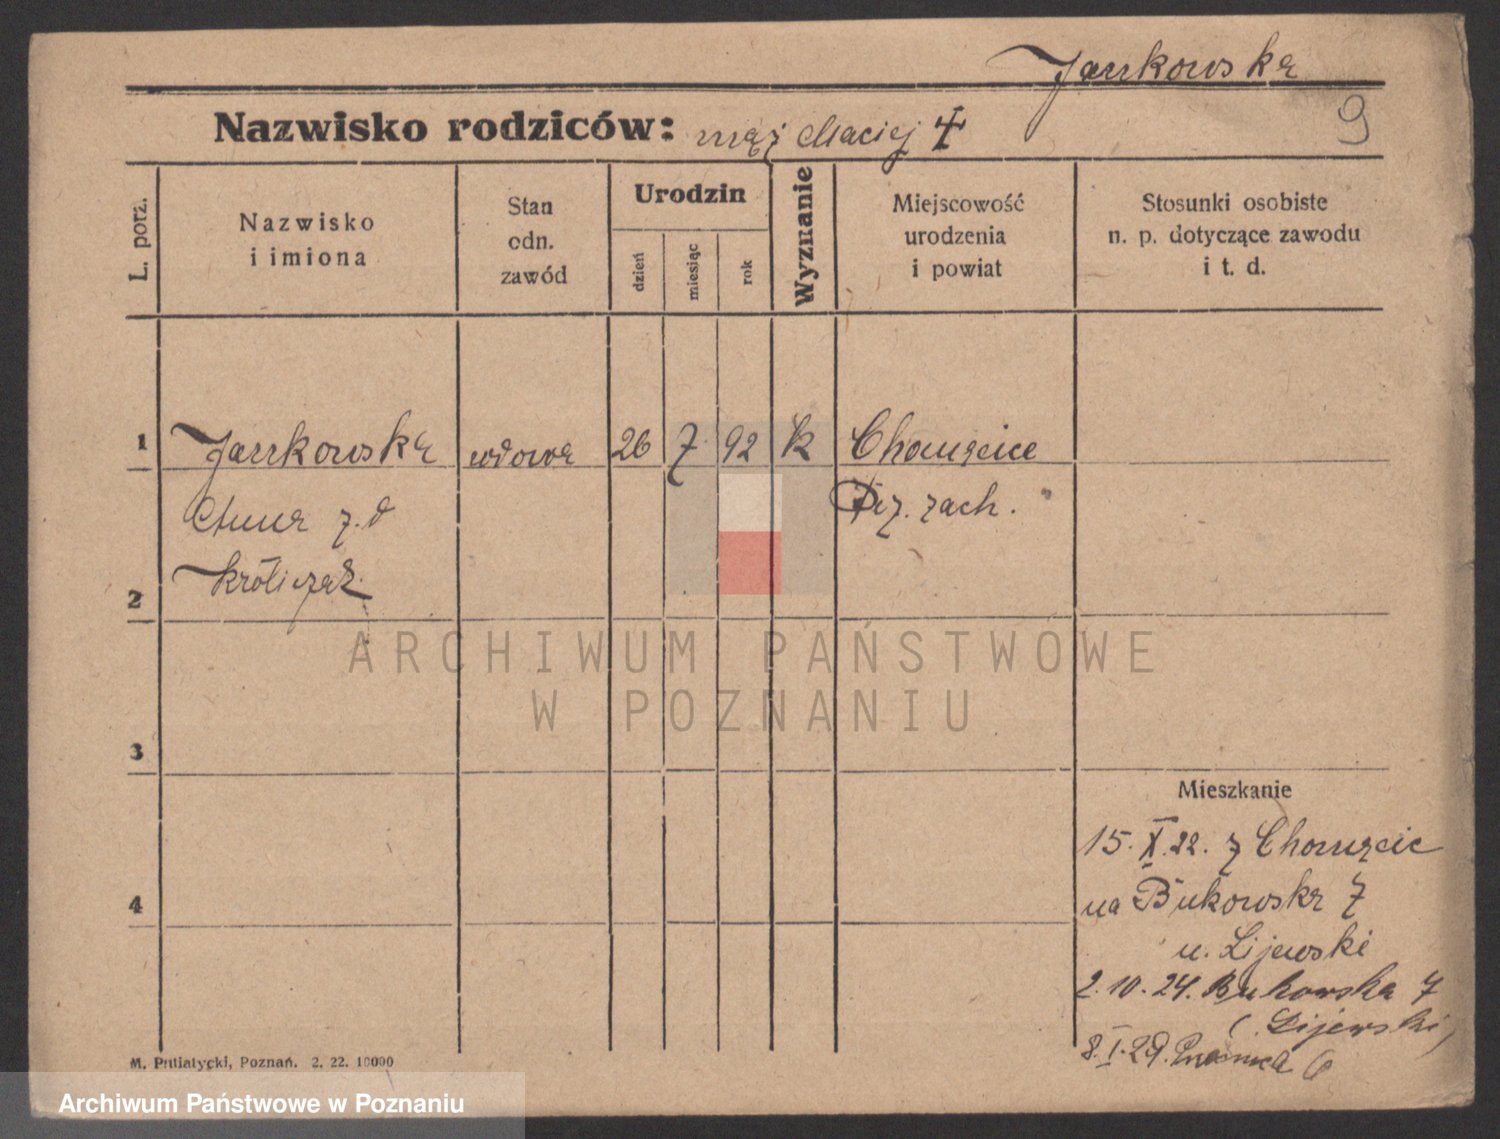 Jankowska
9
Nazwisko rodziców: mąż Maciej
L. porz.
Nazwisko
i imiona
Stan
odn.
zawód
Urodzin
dzień
miesiąc
rok
Wyznanie
Miejscowość
urodzenia
i powiat
Stosunki osobiste
n. p. dotyczące zawodu
i t. d.
1 Jankowska wdowa 26 7. 92 k Chomęcice
Anna z. d Pz. zach.
2 Króliczak
3
Mieszkanie
15. X. 22. z Chomęcic
4
na Bukowska 7
u. Lijewski
2. 10. 24. Bukowska 7
( Lijewski)
8. I. 29. 6
M. Putiatycki, Poznań. 2. 22. 10000
ARCHIWUM PAŃSTWOWE
W POZNANIU
Archiwum Państwowe w Poznaniu